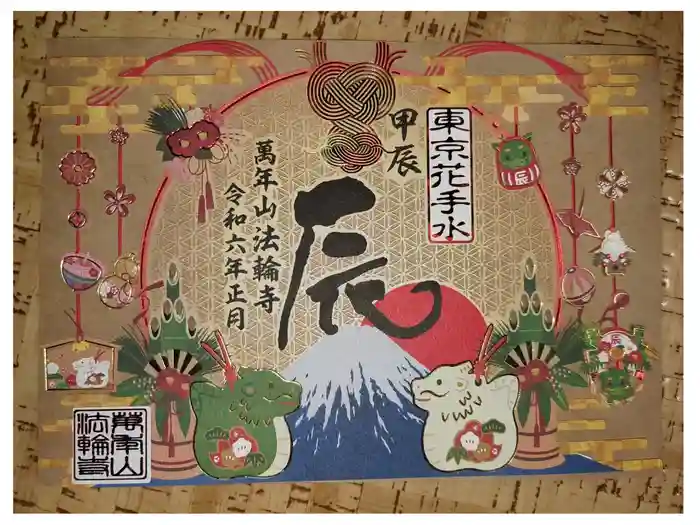 東京花手水
甲辰
辰
萬年山法輪寺
令和六年正月
辰
萬年山
法輪寺